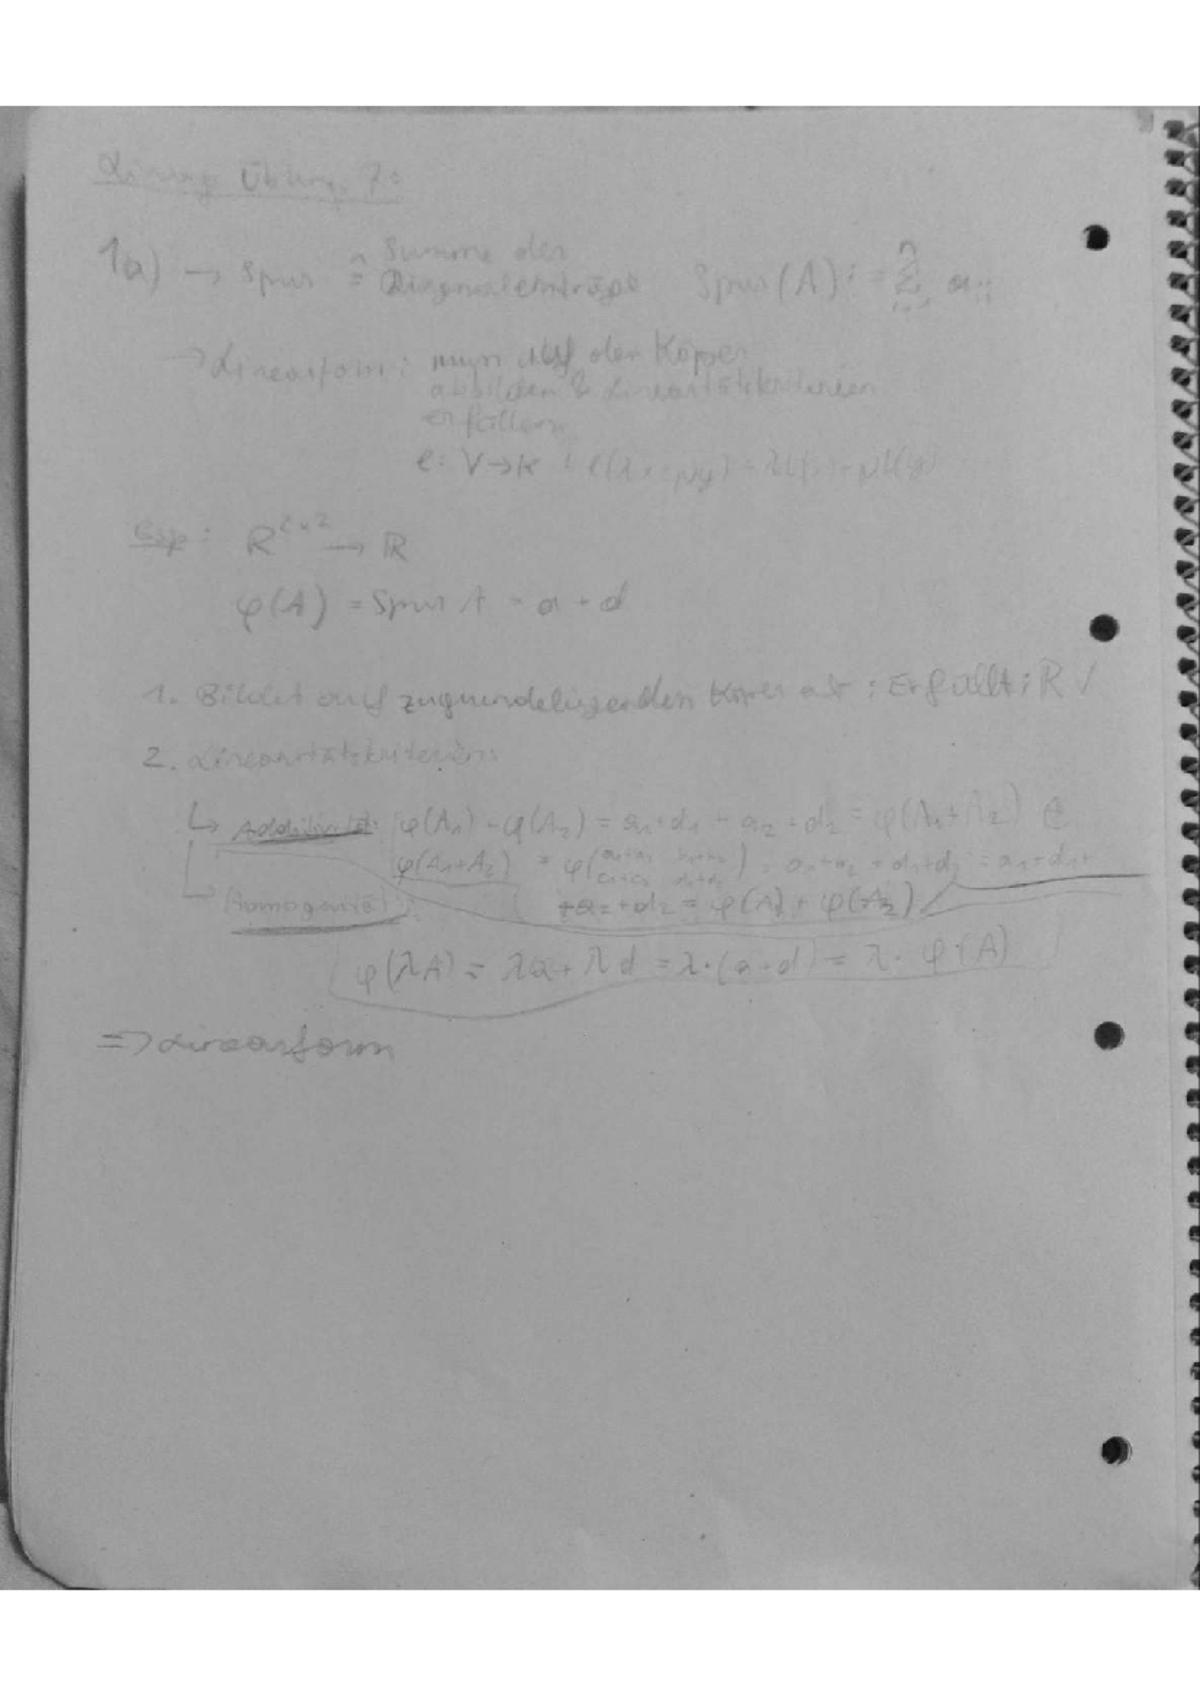 Übung 7:
1a) → Spur ≙ Summe der
Diagonaleinträge Spur(A) := Σ aᵢᵢ
n
→ Linearform: muss auf den Körper
abbilden & Linearitätskriterien
erfüllen
l: V→K l(λx+μy) = λl(x)+μl(y)
Bsp: R^{2x2} → R
φ(A) = Spur A = a + d
1. Bildet auf zugrundeliegenden Körper ab : Erfüllt: R ✓
2. Linearitätskriterien:
↳ Additivität: φ(A₁)+φ(A₂) = a₁+d₁ + a₂+d₂ = φ(A₁+A₂)
φ(A₁+A₂) = φ(a₁+a₂ b₁+b₂
c₁+c₂ d₁+d₂) = a₁+a₂ + d₁+d₂ = a₁+d₁+
↳ Homogenität: +a₂+d₂ = φ(A₁) + φ(A₂)
φ(λA) = λa + λd = λ·(a+d) = λ·φ(A)
=> Linearform